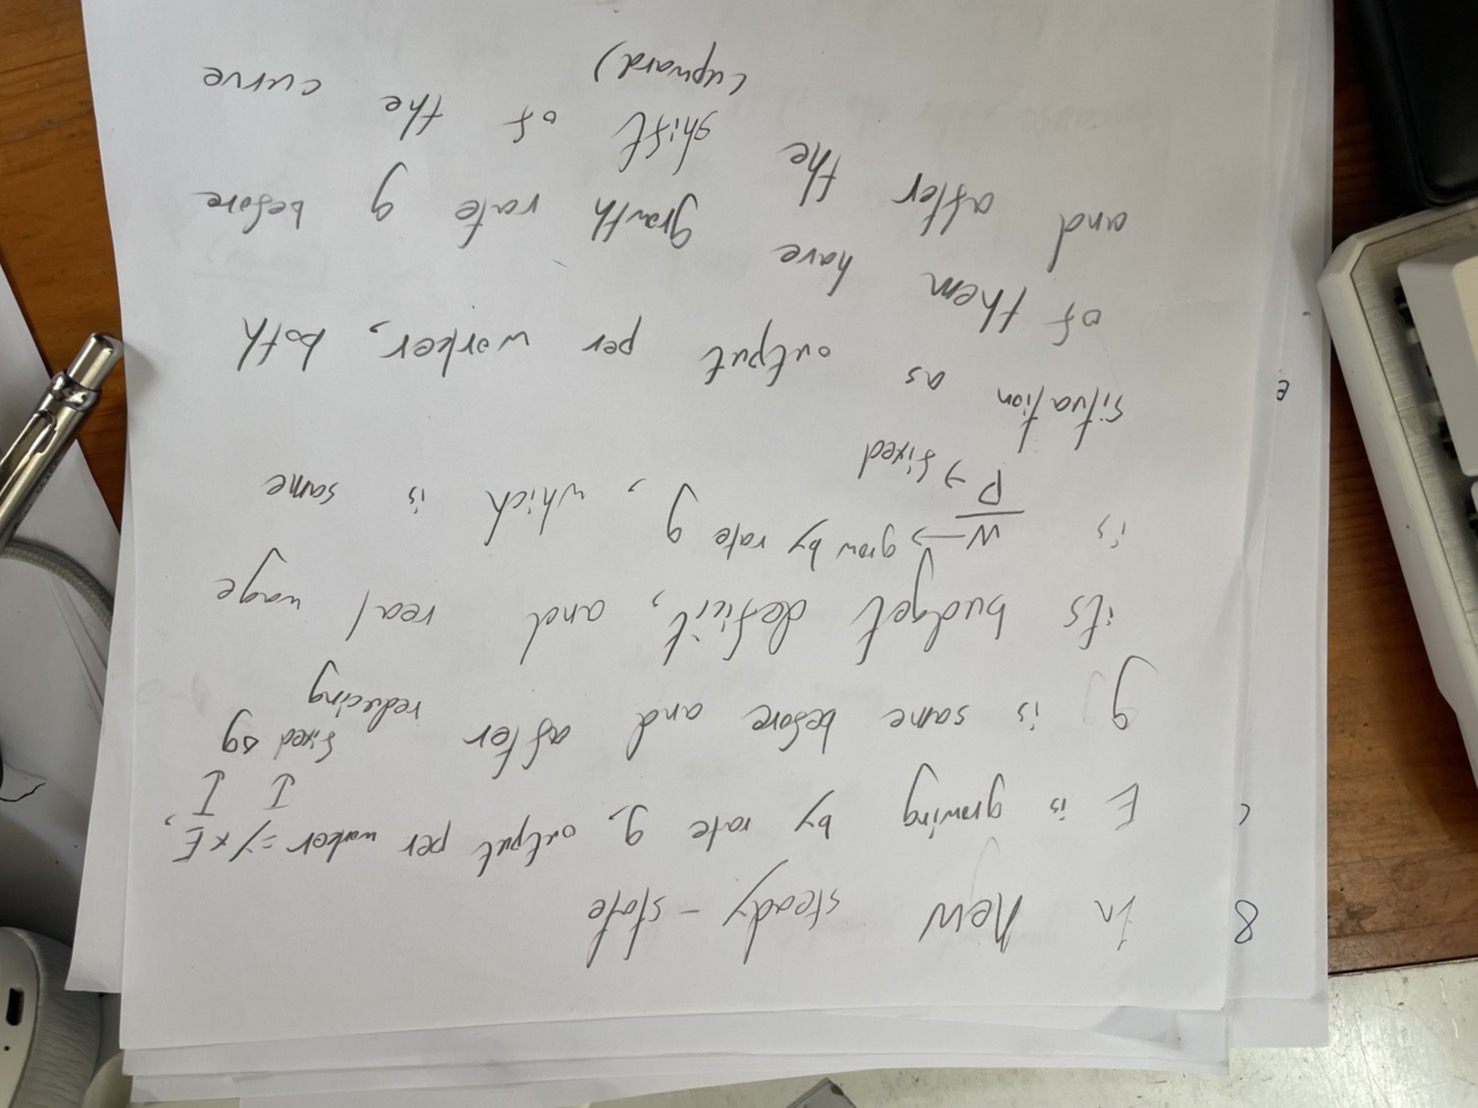 8
In new steady-state
E is growing by rate g, output per worker = y x E,
fixed Δg
g is same before and after reducing
its budget deficit, and real wage
is W/P → grow by rate g, which is same
→ fixed
situation as output per worker, both
of them have growth rate g before
and after the shift of the curve
(upward)
e